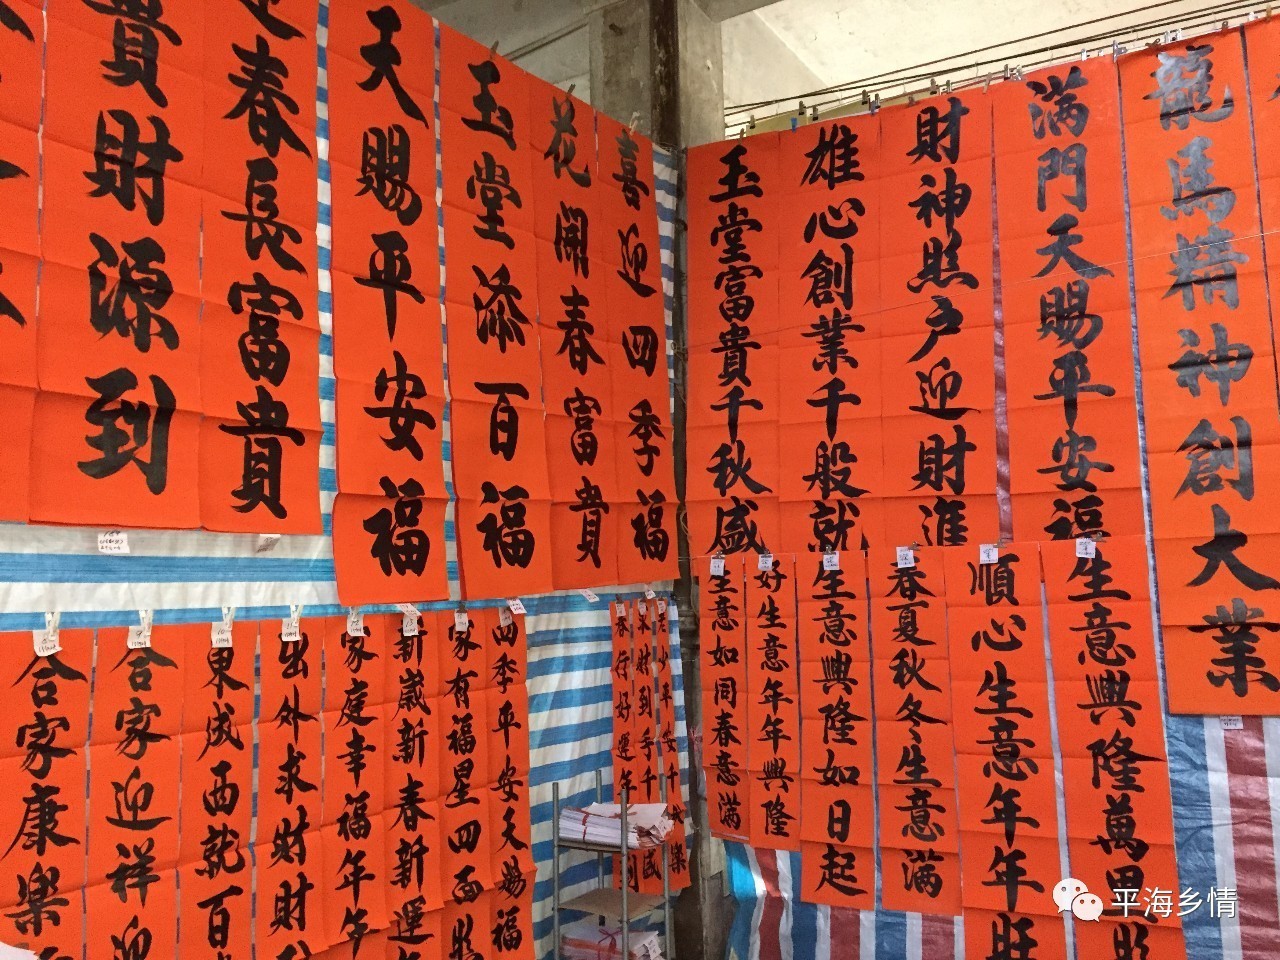 貴財源到
迎春長富貴
天賜平安福
玉堂添百福
花開春富貴
喜迎四季福
玉堂富貴千秋盛
雄心創業千般就
財神照户迎財進
满門天賜平安福
龍馬精神創大業
合家康樂
合家迎祥迎
東成西就百
出外求財財
家庭幸福年年
新歲新春新運
家有福星四面照
四季平安天賜福
春行好運年
求財到手千
老少平安千秋樂
生意如同春意满
好生意年年興隆
生意興隆如日起
春夏秋冬生意满
順心生意年年旺
生意興隆萬里照
平海乡情